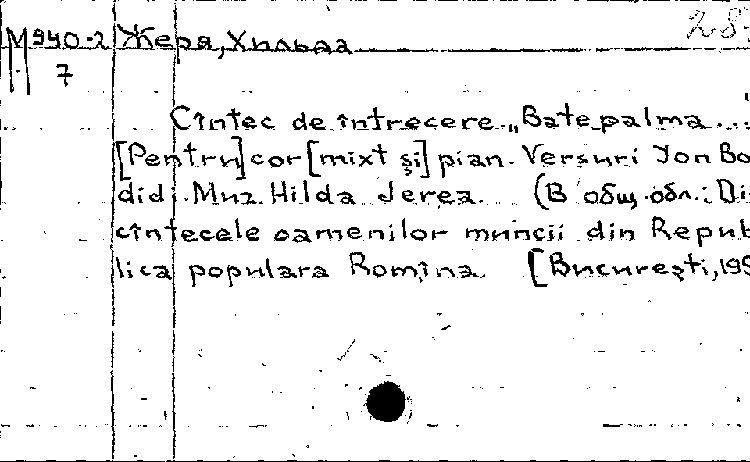 28
М 940-2 Жеря, Хильда
7
Cîntec de întrecere „Bate palma...
[Pentru] cor [mixt și] pian. Versuri Ion Bo
didi. Муз. Hilda Jerea. (В общ. обл.: Di
cîntecele oamenilor muncii din Repub
lica populara Romîna. [București, 195